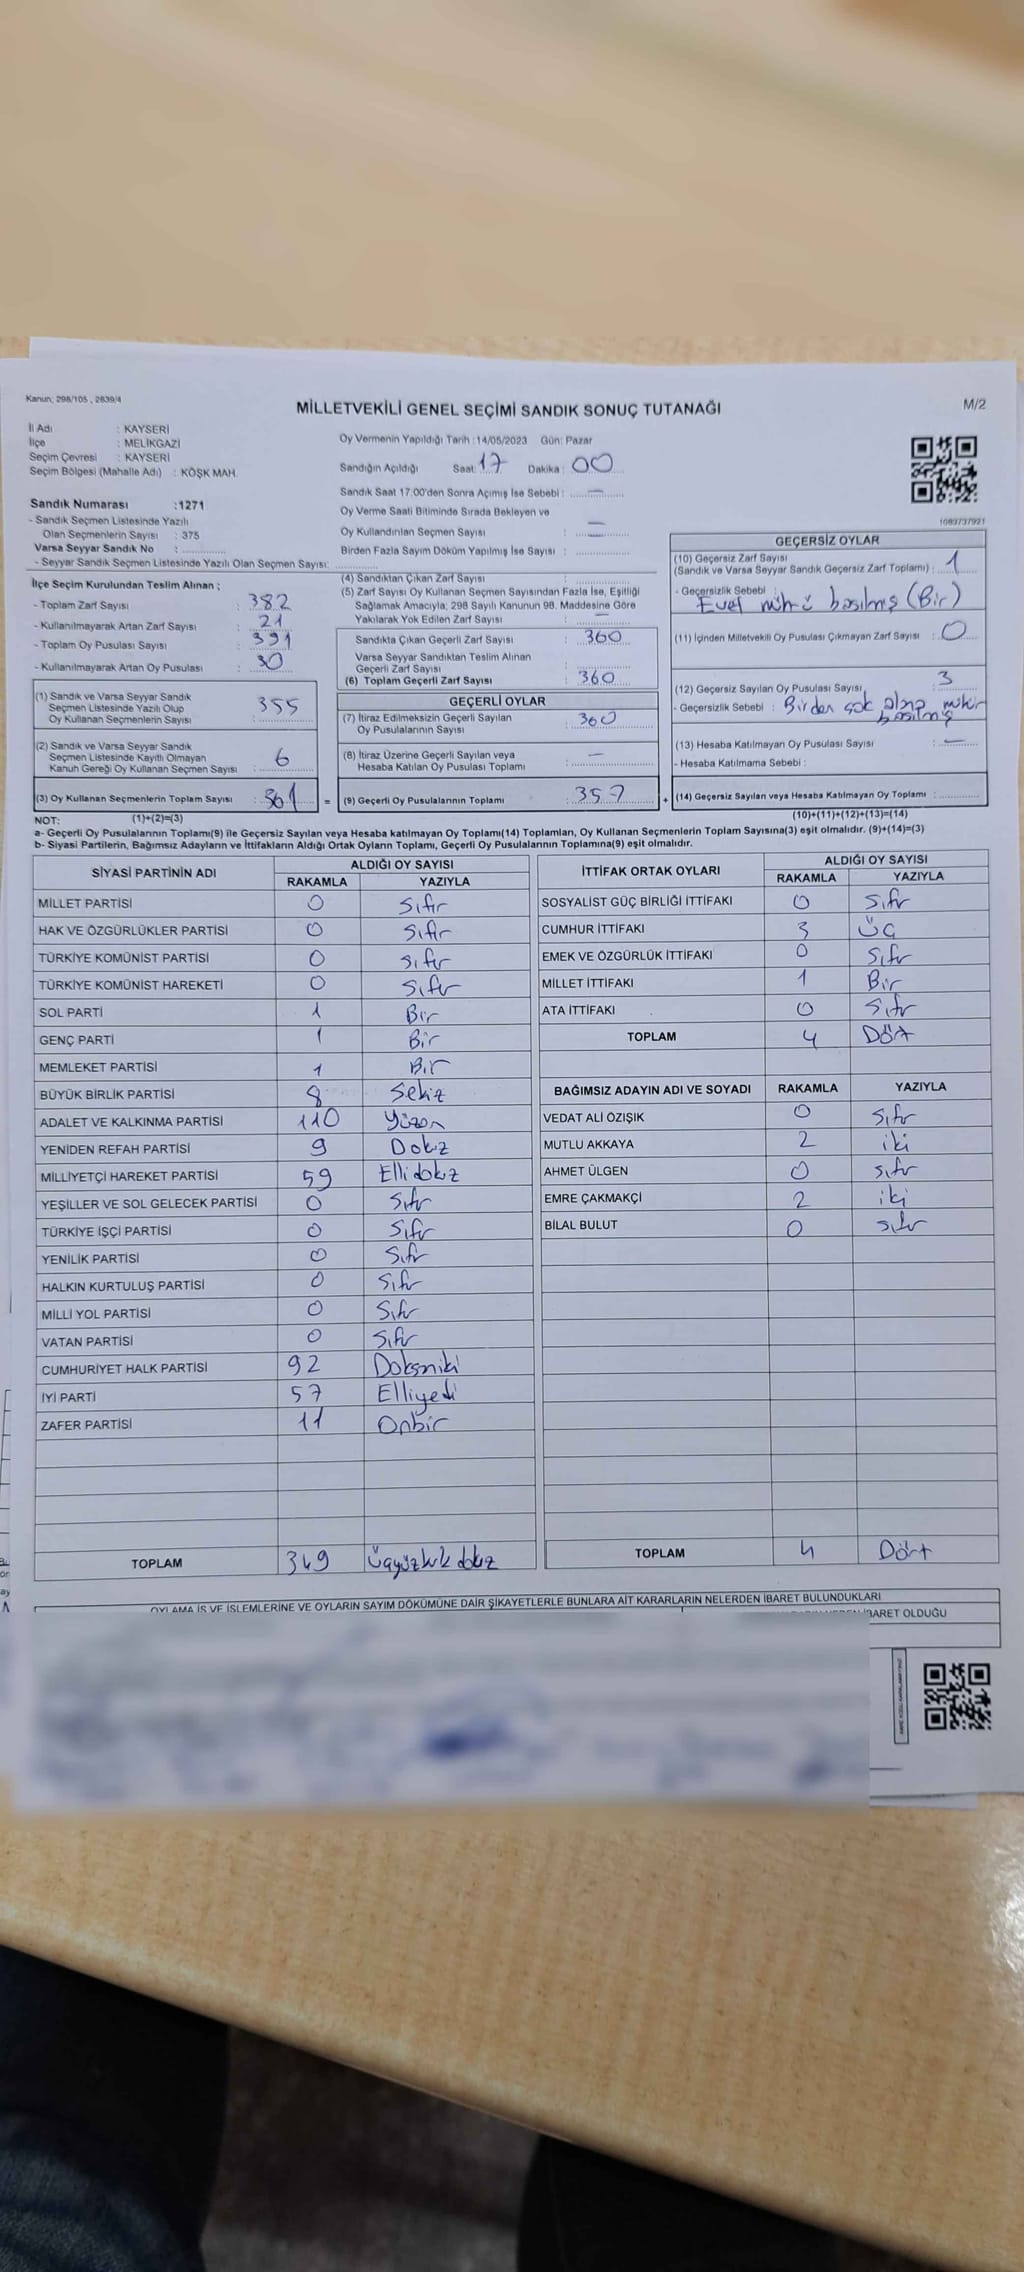 Kanun; 298/105 , 2839/4
MİLLETVEKİLİ GENEL SEÇİMİ SANDIK SONUÇ TUTANAĞI
M/2
İl Adı : KAYSERİ
İlçe : MELİKGAZİ
Seçim Çevresi : KAYSERİ
Seçim Bölgesi (Mahalle Adı) : KÖŞK MAH.
Oy Vermenin Yapıldığı Tarih :14/05/2023 Gün: Pazar
Sandığın Açıldığı Saat: 17 Dakika : 00
Sandık Saat 17:00'den Sonra Açımış İse Sebebi : —
Oy Verme Saati Bitiminde Sırada Bekleyen ve
Oy Kullandırılan Seçmen Sayısı : —
Birden Fazla Sayım Döküm Yapılmış İse Sayısı :
1083737921
Sandık Numarası :1271
- Sandık Seçmen Listesinde Yazılı
Olan Seçmenlerin Sayısı : 375
Varsa Seyyar Sandık No :
- Seyyar Sandık Seçmen Listesinde Yazılı Olan Seçmen Sayısı:
İlçe Seçim Kurulundan Teslim Alınan ;
- Toplam Zarf Sayısı : 382
- Kullanılmayarak Artan Zarf Sayısı : 21
- Toplam Oy Pusulası Sayısı : 391
- Kullanılmayarak Artan Oy Pusulası : 30
(1) Sandık ve Varsa Seyyar Sandık
Seçmen Listesinde Yazılı Olup
Oy Kullanan Seçmenlerin Sayısı : 355
(2) Sandık ve Varsa Seyyar Sandık
Seçmen Listesinde Kayıtlı Olmayan
Kanun Gereği Oy Kullanan Seçmen Sayısı : 6
(3) Oy Kullanan Seçmenlerin Toplam Sayısı : 361 =
(4) Sandıktan Çıkan Zarf Sayısı :
(5) Zarf Sayısı Oy Kullanan Seçmen Sayısından Fazla İse, Eşitliği
Sağlamak Amacıyla; 298 Sayılı Kanunun 98. Maddesine Göre
Yakılarak Yok Edilen Zarf Sayısı : —
Sandıkta Çıkan Geçerli Zarf Sayısı : 360
Varsa Seyyar Sandıktan Teslim Alınan
Geçerli Zarf Sayısı :
(6) Toplam Geçerli Zarf Sayısı : 360
GEÇERLİ OYLAR
(7) İtiraz Edilmeksizin Geçerli Sayılan
Oy Pusulalarının Sayısı : 360
(8) İtiraz Üzerine Geçerli Sayılan veya
Hesaba Katılan Oy Pusulası Toplamı : —
(9) Geçerli Oy Pusulalarının Toplamı : 357 +
GEÇERSİZ OYLAR
(10) Geçersiz Zarf Sayısı
(Sandık ve Varsa Seyyar Sandık Geçersiz Zarf Toplamı) : 1
- Geçersizlik Sebebi :
Evet mührü basılmış (Bir)
(11) İçinden Milletvekili Oy Pusulası Çıkmayan Zarf Sayısı : 0
(12) Geçersiz Sayılan Oy Pusulası Sayısı : 3
- Geçersizlik Sebebi : Birden çok alana mühür
basılmış
(13) Hesaba Katılmayan Oy Pusulası Sayısı : —
- Hesaba Katılmama Sebebi :
(14) Geçersiz Sayılan veya Hesaba Katılmayan Oy Toplamı :
NOT: (1)+(2)=(3)
(10)+(11)+(12)+(13)=(14)
a- Geçerli Oy Pusulalarının Toplamı(9) ile Geçersiz Sayılan veya Hesaba katılmayan Oy Toplamı(14) Toplamları, Oy Kullanan Seçmenlerin Toplam Sayısına(3) eşit olmalıdır. (9)+(14)=(3)
b- Siyasi Partilerin, Bağımsız Adayların ve İttifakların Aldığı Ortak Oyların Toplamı, Geçerli Oy Pusulalarının Toplamına(9) eşit olmalıdır.
SİYASİ PARTİNİN ADI ALDIĞI OY SAYISI
RAKAMLA YAZIYLA
MİLLET PARTİSİ 0 Sıfır
HAK VE ÖZGÜRLÜKLER PARTİSİ 0 Sıfır
TÜRKİYE KOMÜNİST PARTİSİ 0 Sıfır
TÜRKİYE KOMÜNİST HAREKETİ 0 Sıfır
SOL PARTİ 1 Bir
GENÇ PARTİ 1 Bir
MEMLEKET PARTİSİ 1 Bir
BÜYÜK BİRLİK PARTİSİ 8 Sekiz
ADALET VE KALKINMA PARTİSİ 110 Yüzon
YENİDEN REFAH PARTİSİ 9 Dokuz
MİLLİYETÇİ HAREKET PARTİSİ 59 Ellidokuz
YEŞİLLER VE SOL GELECEK PARTİSİ 0 Sıfır
TÜRKİYE İŞÇİ PARTİSİ 0 Sıfır
YENİLİK PARTİSİ 0 Sıfır
HALKIN KURTULUŞ PARTİSİ 0 Sıfır
MİLLİ YOL PARTİSİ 0 Sıfır
VATAN PARTİSİ 0 Sıfır
CUMHURİYET HALK PARTİSİ 92 Doksaniki
İYİ PARTİ 57 Elliyedi
ZAFER PARTİSİ 11 Onbir
TOPLAM 349 Üçyüzkırkdokuz
İTTİFAK ORTAK OYLARI ALDIĞI OY SAYISI
RAKAMLA YAZIYLA
SOSYALİST GÜÇ BİRLİĞİ İTTİFAKI 0 Sıfır
CUMHUR İTTİFAKI 3 Üç
EMEK VE ÖZGÜRLÜK İTTİFAKI 0 Sıfır
MİLLET İTTİFAKI 1 Bir
ATA İTTİFAKI 0 Sıfır
TOPLAM 4 Dört
BAĞIMSIZ ADAYIN ADI VE SOYADI RAKAMLA YAZIYLA
VEDAT ALİ ÖZIŞIK 0 Sıfır
MUTLU AKKAYA 2 iki
AHMET ÜLGEN 0 sıfır
EMRE ÇAKMAKÇİ 2 iki
BİLAL BULUT 0 sıfır
TOPLAM 4 Dört
OYLAMA İŞ VE İŞLEMLERİNE VE OYLARIN SAYIM DÖKÜMÜNE DAİR ŞİKAYETLERLE BUNLARA AİT KARARLARIN NELERDEN İBARET BULUNDUKLARI
İBARET OLDUĞU